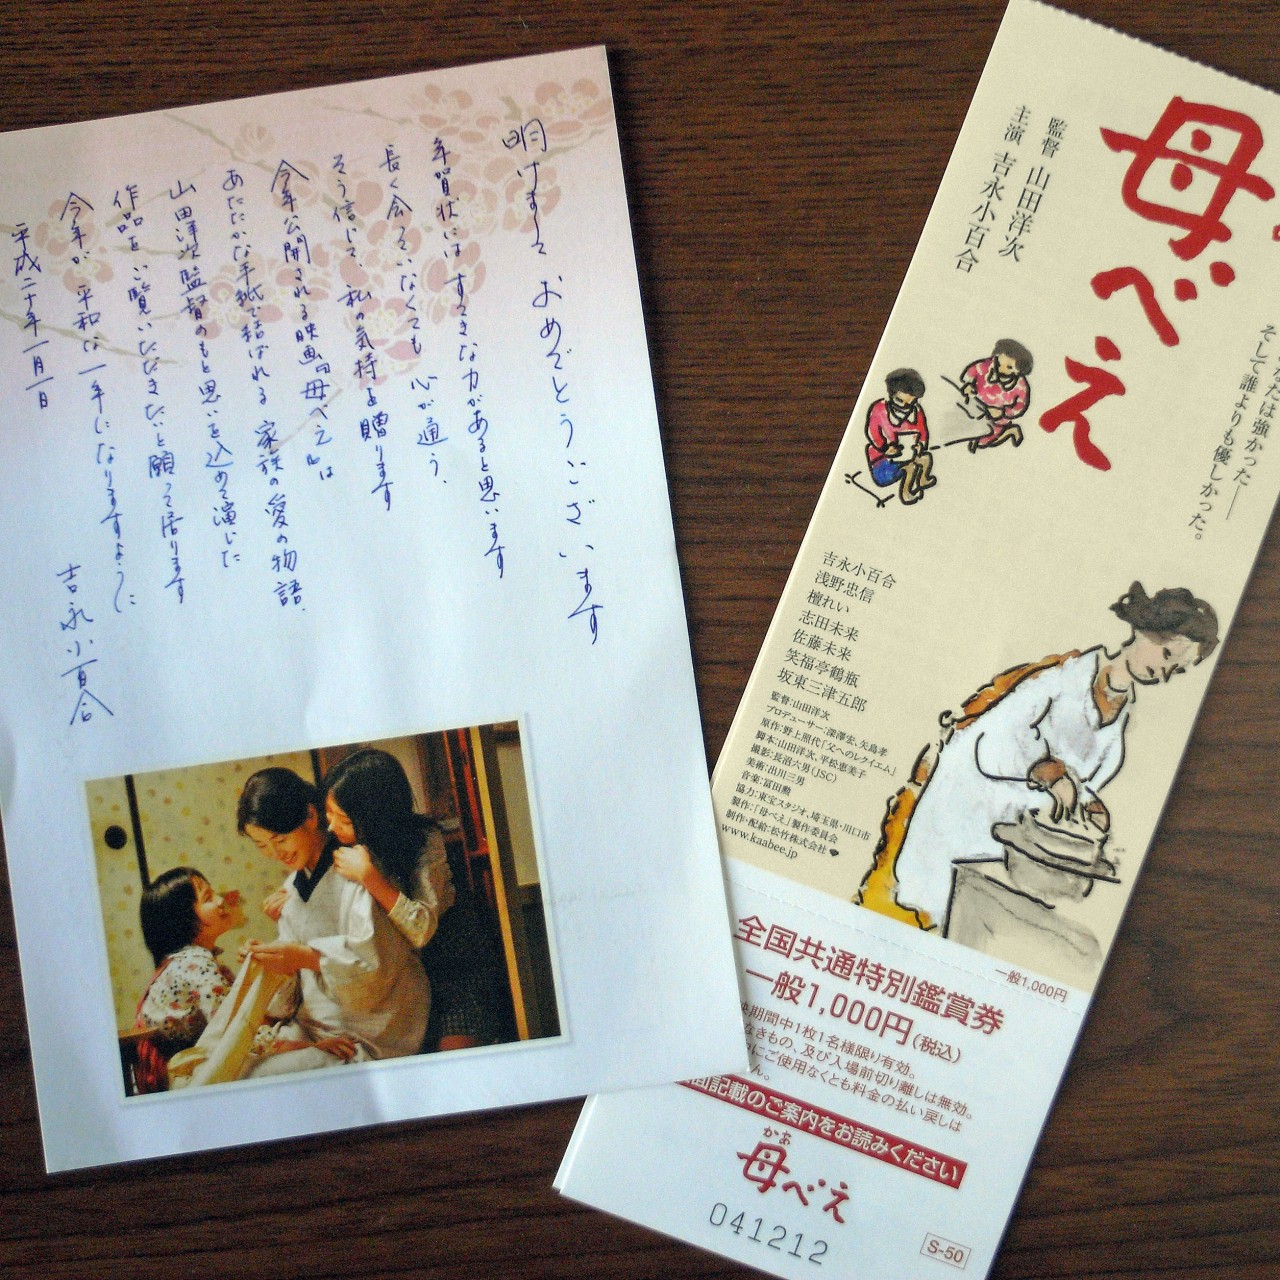 明けまして おめでとうございます
年賀状には すてきな力があると思います
長く会っていなくても 心が通う、
そう信じて、私の気持を贈ります
今年公開される映画『母べえ』は
あたたかな手紙で結ばれる 家族の愛の物語、
山田洋次監督のもと思いを込めて演じた
作品を、ご覧いただきたいと願って居ります
今年が 平和な一年になりますように
平成二十年一月一日
吉永小百合
母べえ
監督 山田洋次
主演 吉永小百合
は強かった——
そして誰よりも優しかった。
吉永小百合
浅野忠信
檀れい
志田未来
佐藤未来
笑福亭鶴瓶
坂東三津五郎
監督:山田洋次
プロデューサー:深澤宏、矢島孝
原作:野上照代「父へのレクイエム」
脚本:山田洋次、平松恵美子
撮影:長沼六男(JSC)
美術:出川三男
音楽:冨田勲
協力:東宝スタジオ、埼玉県・川口市
製作:「母べえ」製作委員会
制作・配給:松竹株式会社
www.kaabee.jp
一般1,000円
全国共通特別鑑賞券
一般1,000円(税込)
期間中1枚1名様限り有効。
なきもの、及び入場前切り離しは無効。
にご使用なくとも料金の払い戻しは
ん。
記載のご案内をお読みください
かあ
母べえ
041212
S-50